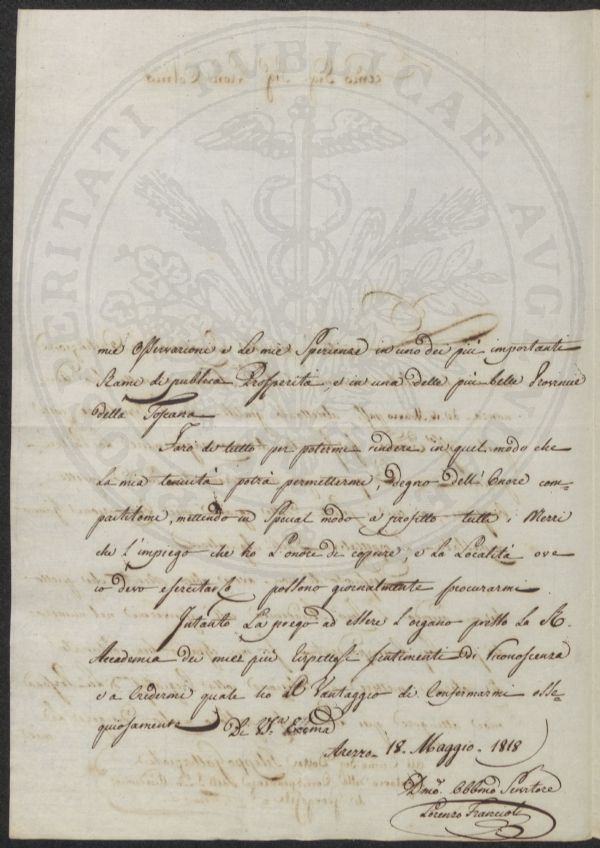 mie Osservazioni e le mie Sperienze in uno dei più importanti
Rami di publica Prosperità, e in una delle più belle Provincie
della Toscana
Farò di tutto per potermi rendere in quel modo che
la mia tenuità potrà permettermi, degno dell'Onore com-
partitomi, mettendo in Special modo a profitto tutti i Mezzi
che l'impiego che ho l'onore di coprire, e la Località ove
io devo esercitarlo possono giornalmente procurarmi
Intanto La prego ad essere l'organo presso la R.
Accademia dei miei più rispettosi sentimenti di riconoscenza
e a Credermi quale ho il Vantaggio di Confermarmi osse-
quiosamente
Di V.ª Eccma
Arezzo 18. Maggio. 1818
Dmo. Obbmo Servitore
Lorenzo Francioli
PROSPERITATI PUBLICAE AUG